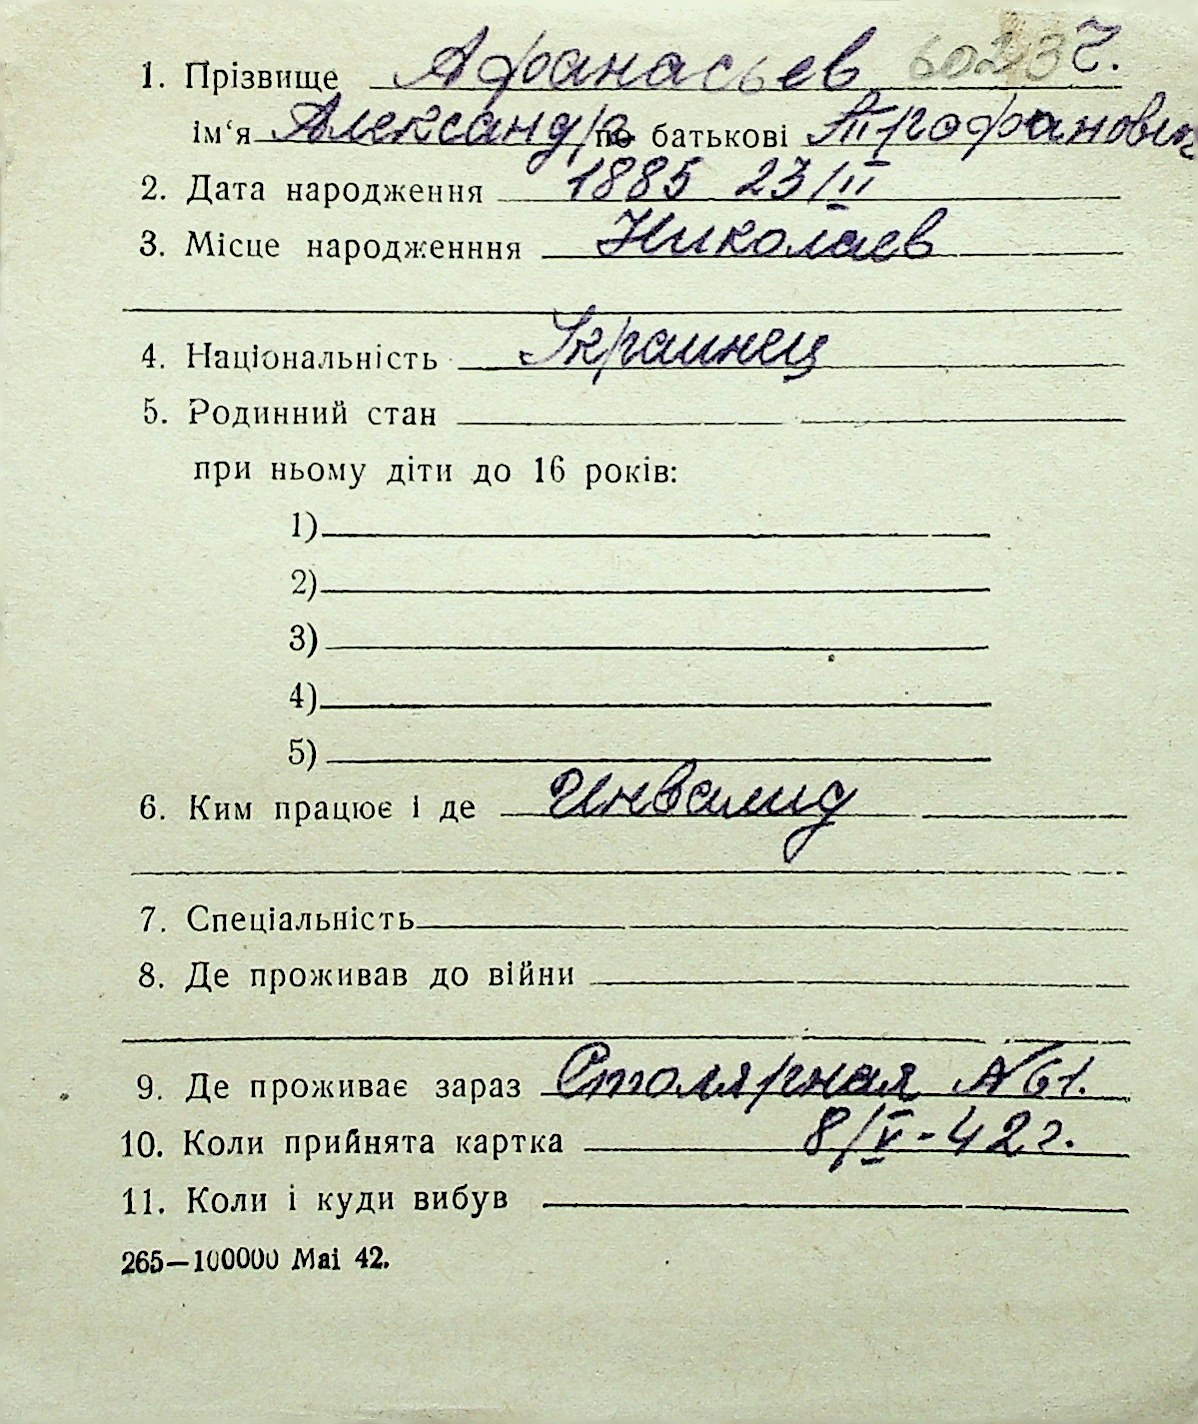 1. Прізвище Афанасьев 60233 Ч.
ім‘я Александр по батькові Трофанович
2. Дата народження 1885 23/II
3. Місце народженння Николаев
4. Національність Украинец
5. Родинний стан
при ньому діти до 16 років:
1)
2)
3)
4)
5)
6. Ким працює і де Инвалид
7. Спеціальність
8. Де проживав до війни
9. Де проживає зараз Столярная N 61.
10. Коли прийнята картка 8/V-42 г.
11. Коли і куди вибув
265—100000 Mai 42.